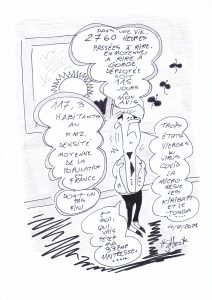 DANS UNE VIE
2760 HEURES
PASSÉES À RIRE,
EN MOYENNE,
À RIRE À
GORGE
DÉPLOYÉE
SOIT
115
JOURS
À MON
AVIS
117,3
HABITANTS
AU
KM2,
DENSITÉ
MOYENNE
DE LA
POPULATION
FRANCE
DONT UN
PAS
BIEN
TROIS
ÉTATS
VIERGES
DU
VIRUS
COVID
LA
MICRO-
NÉSIE
LES
KIRIBATI
ET LE
TONGA
ET
MOI, QUI
VAIS
FÊTER
MA
33ÈME
MAÎTRESSE.